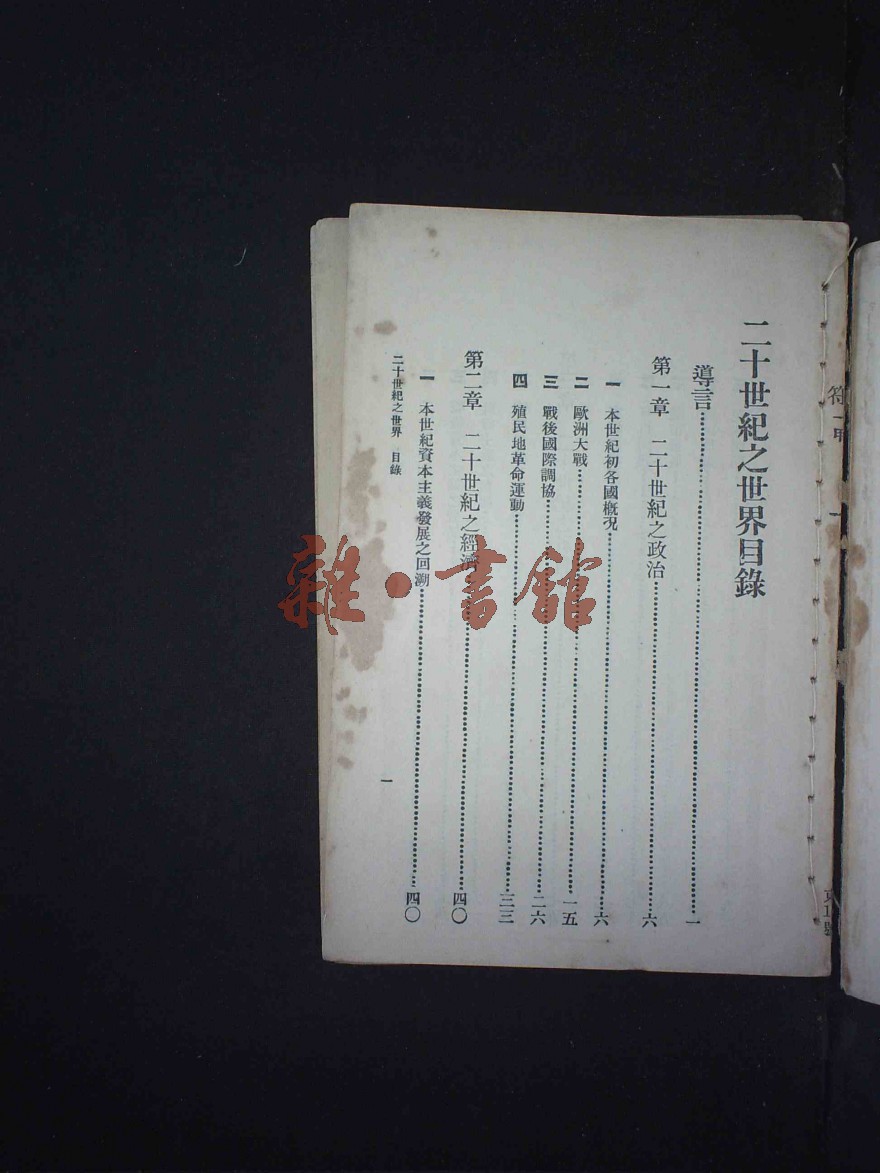 二十世紀之世界目錄
導言……一
第一章 二十世紀之政治……六
一 本世紀初各國概況……六
二 歐洲大戰……一五
三 戰後國際調協……二六
四 殖民地革命運動……三三
第二章 二十世紀之經濟……四〇
一 本世紀資本主義發展之回溯……四〇
二十世紀之世界 目錄
一
雜·書館